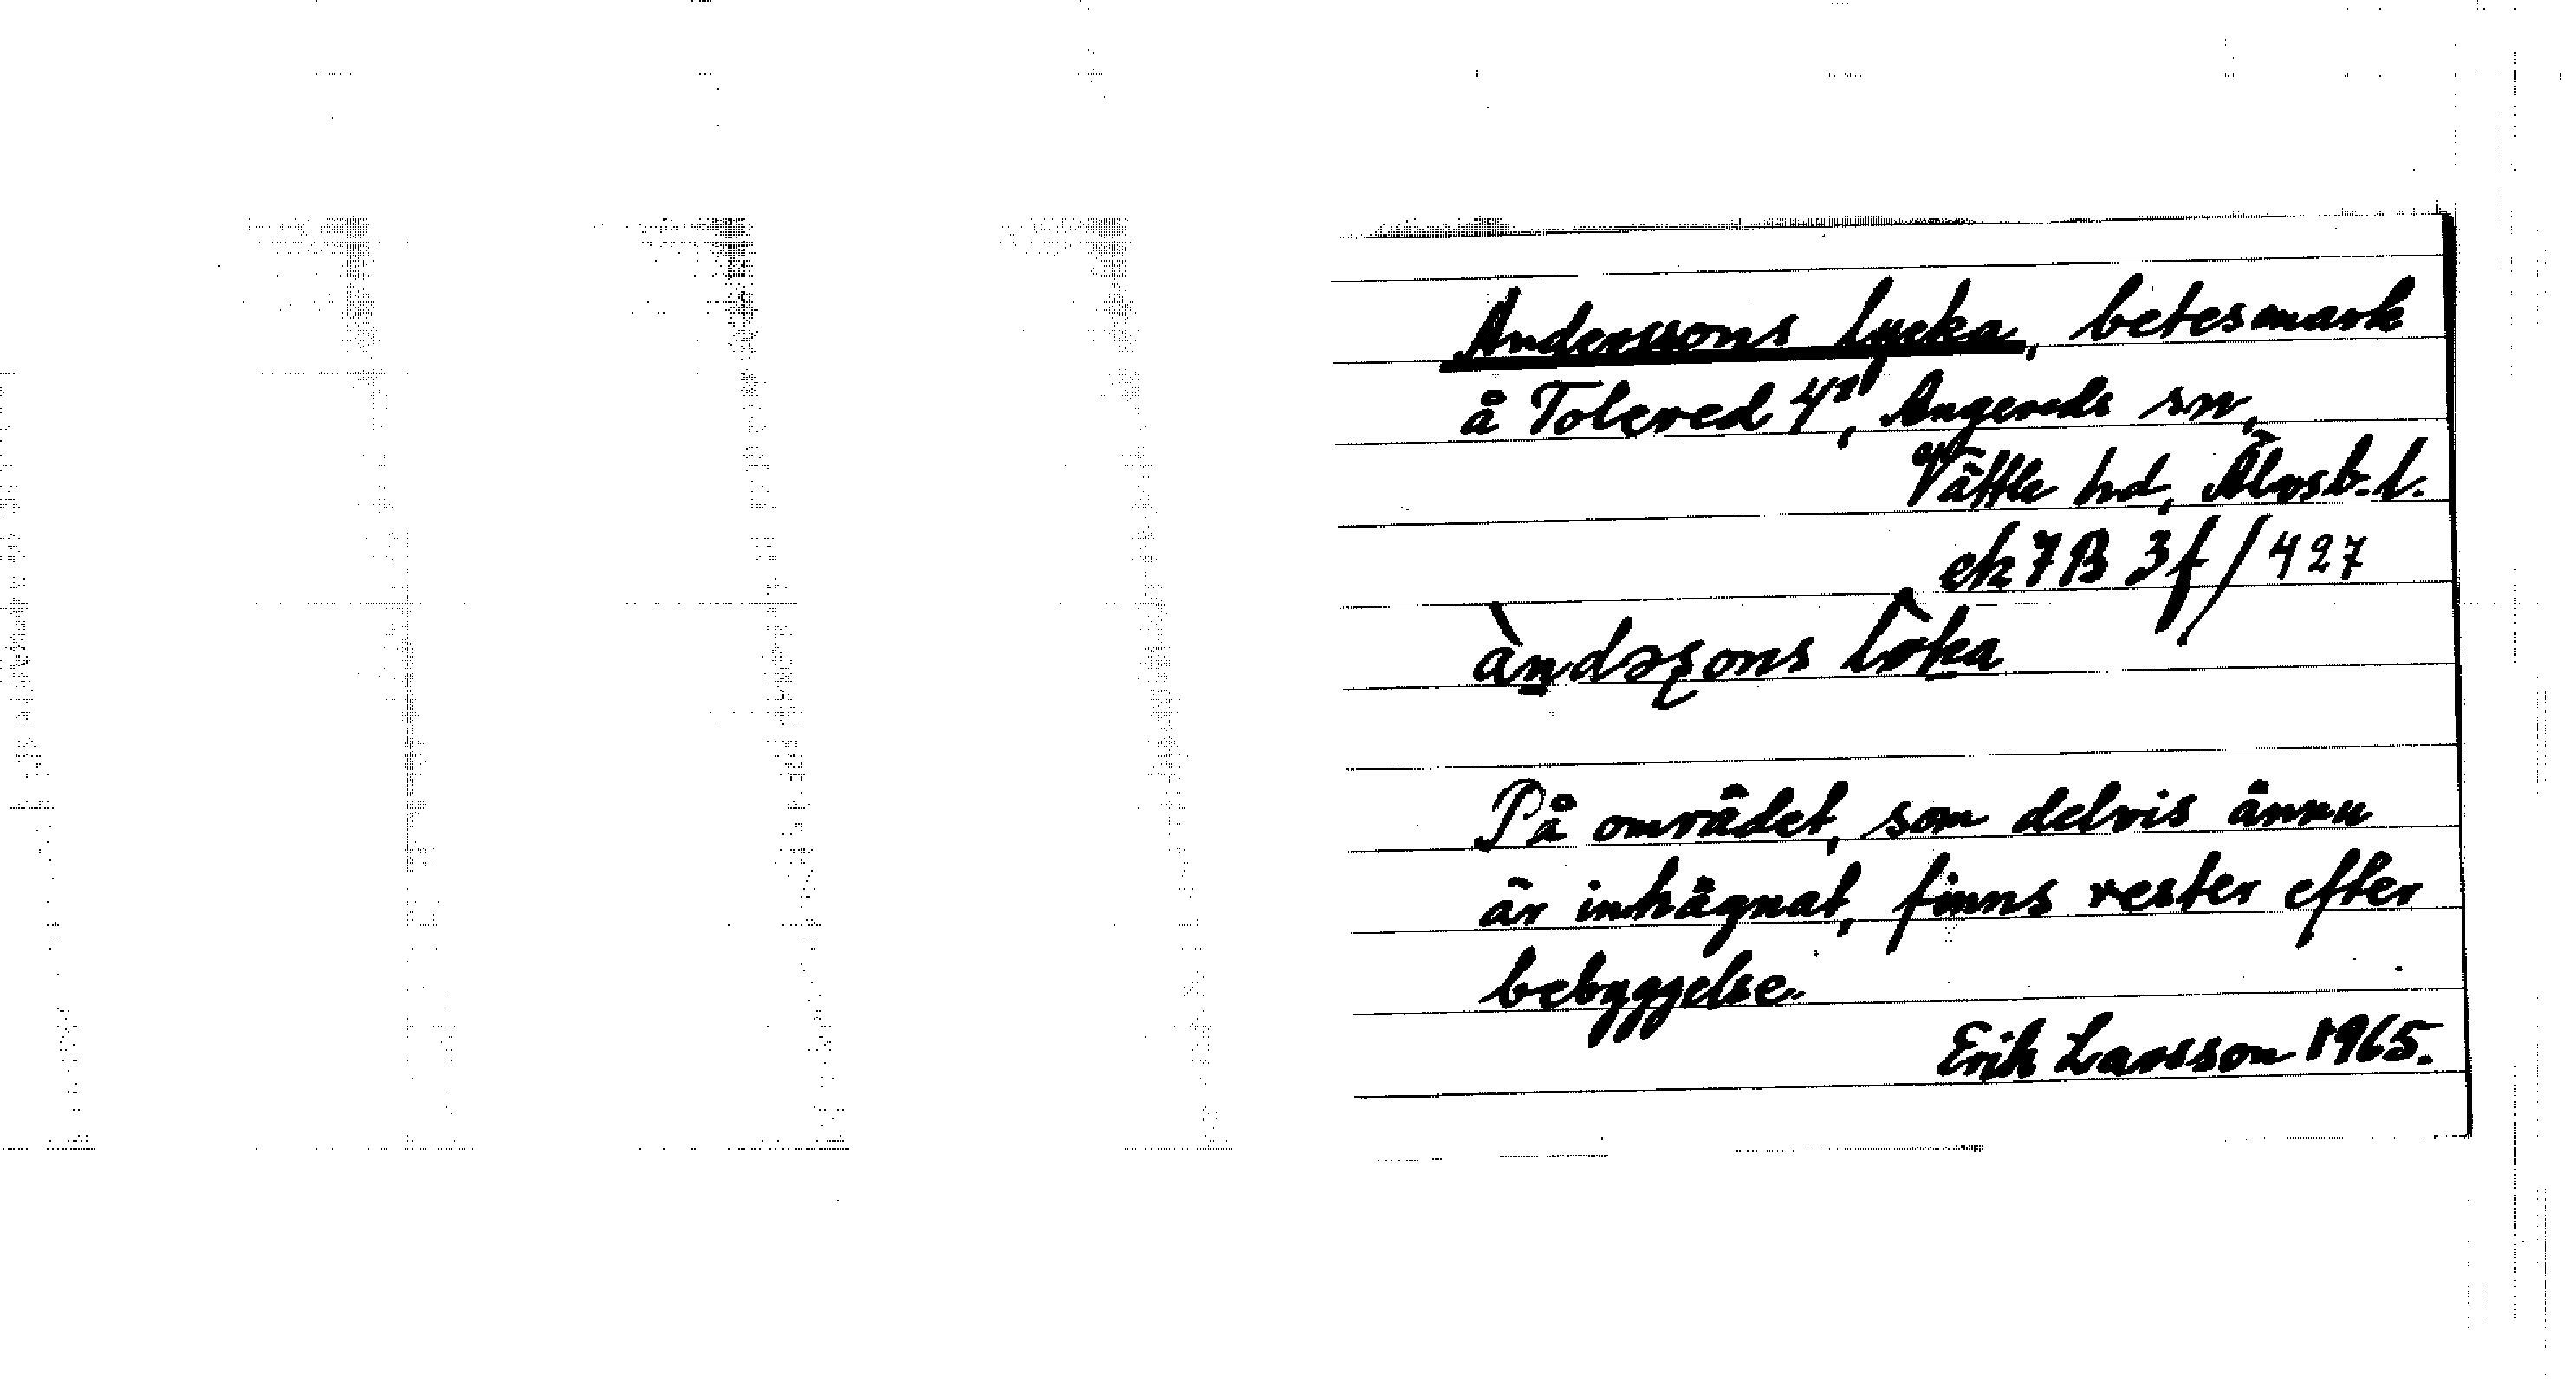 Anderssons lycka, betesmark
å Tolered 4¹, Angereds sn,
Vättle hd, Älvsb. l.
ek 7B 3f / 427
På området, som delvis ännu
är inhägnat, finns rester efter
bebyggelse.
Erik Larsson 1965.